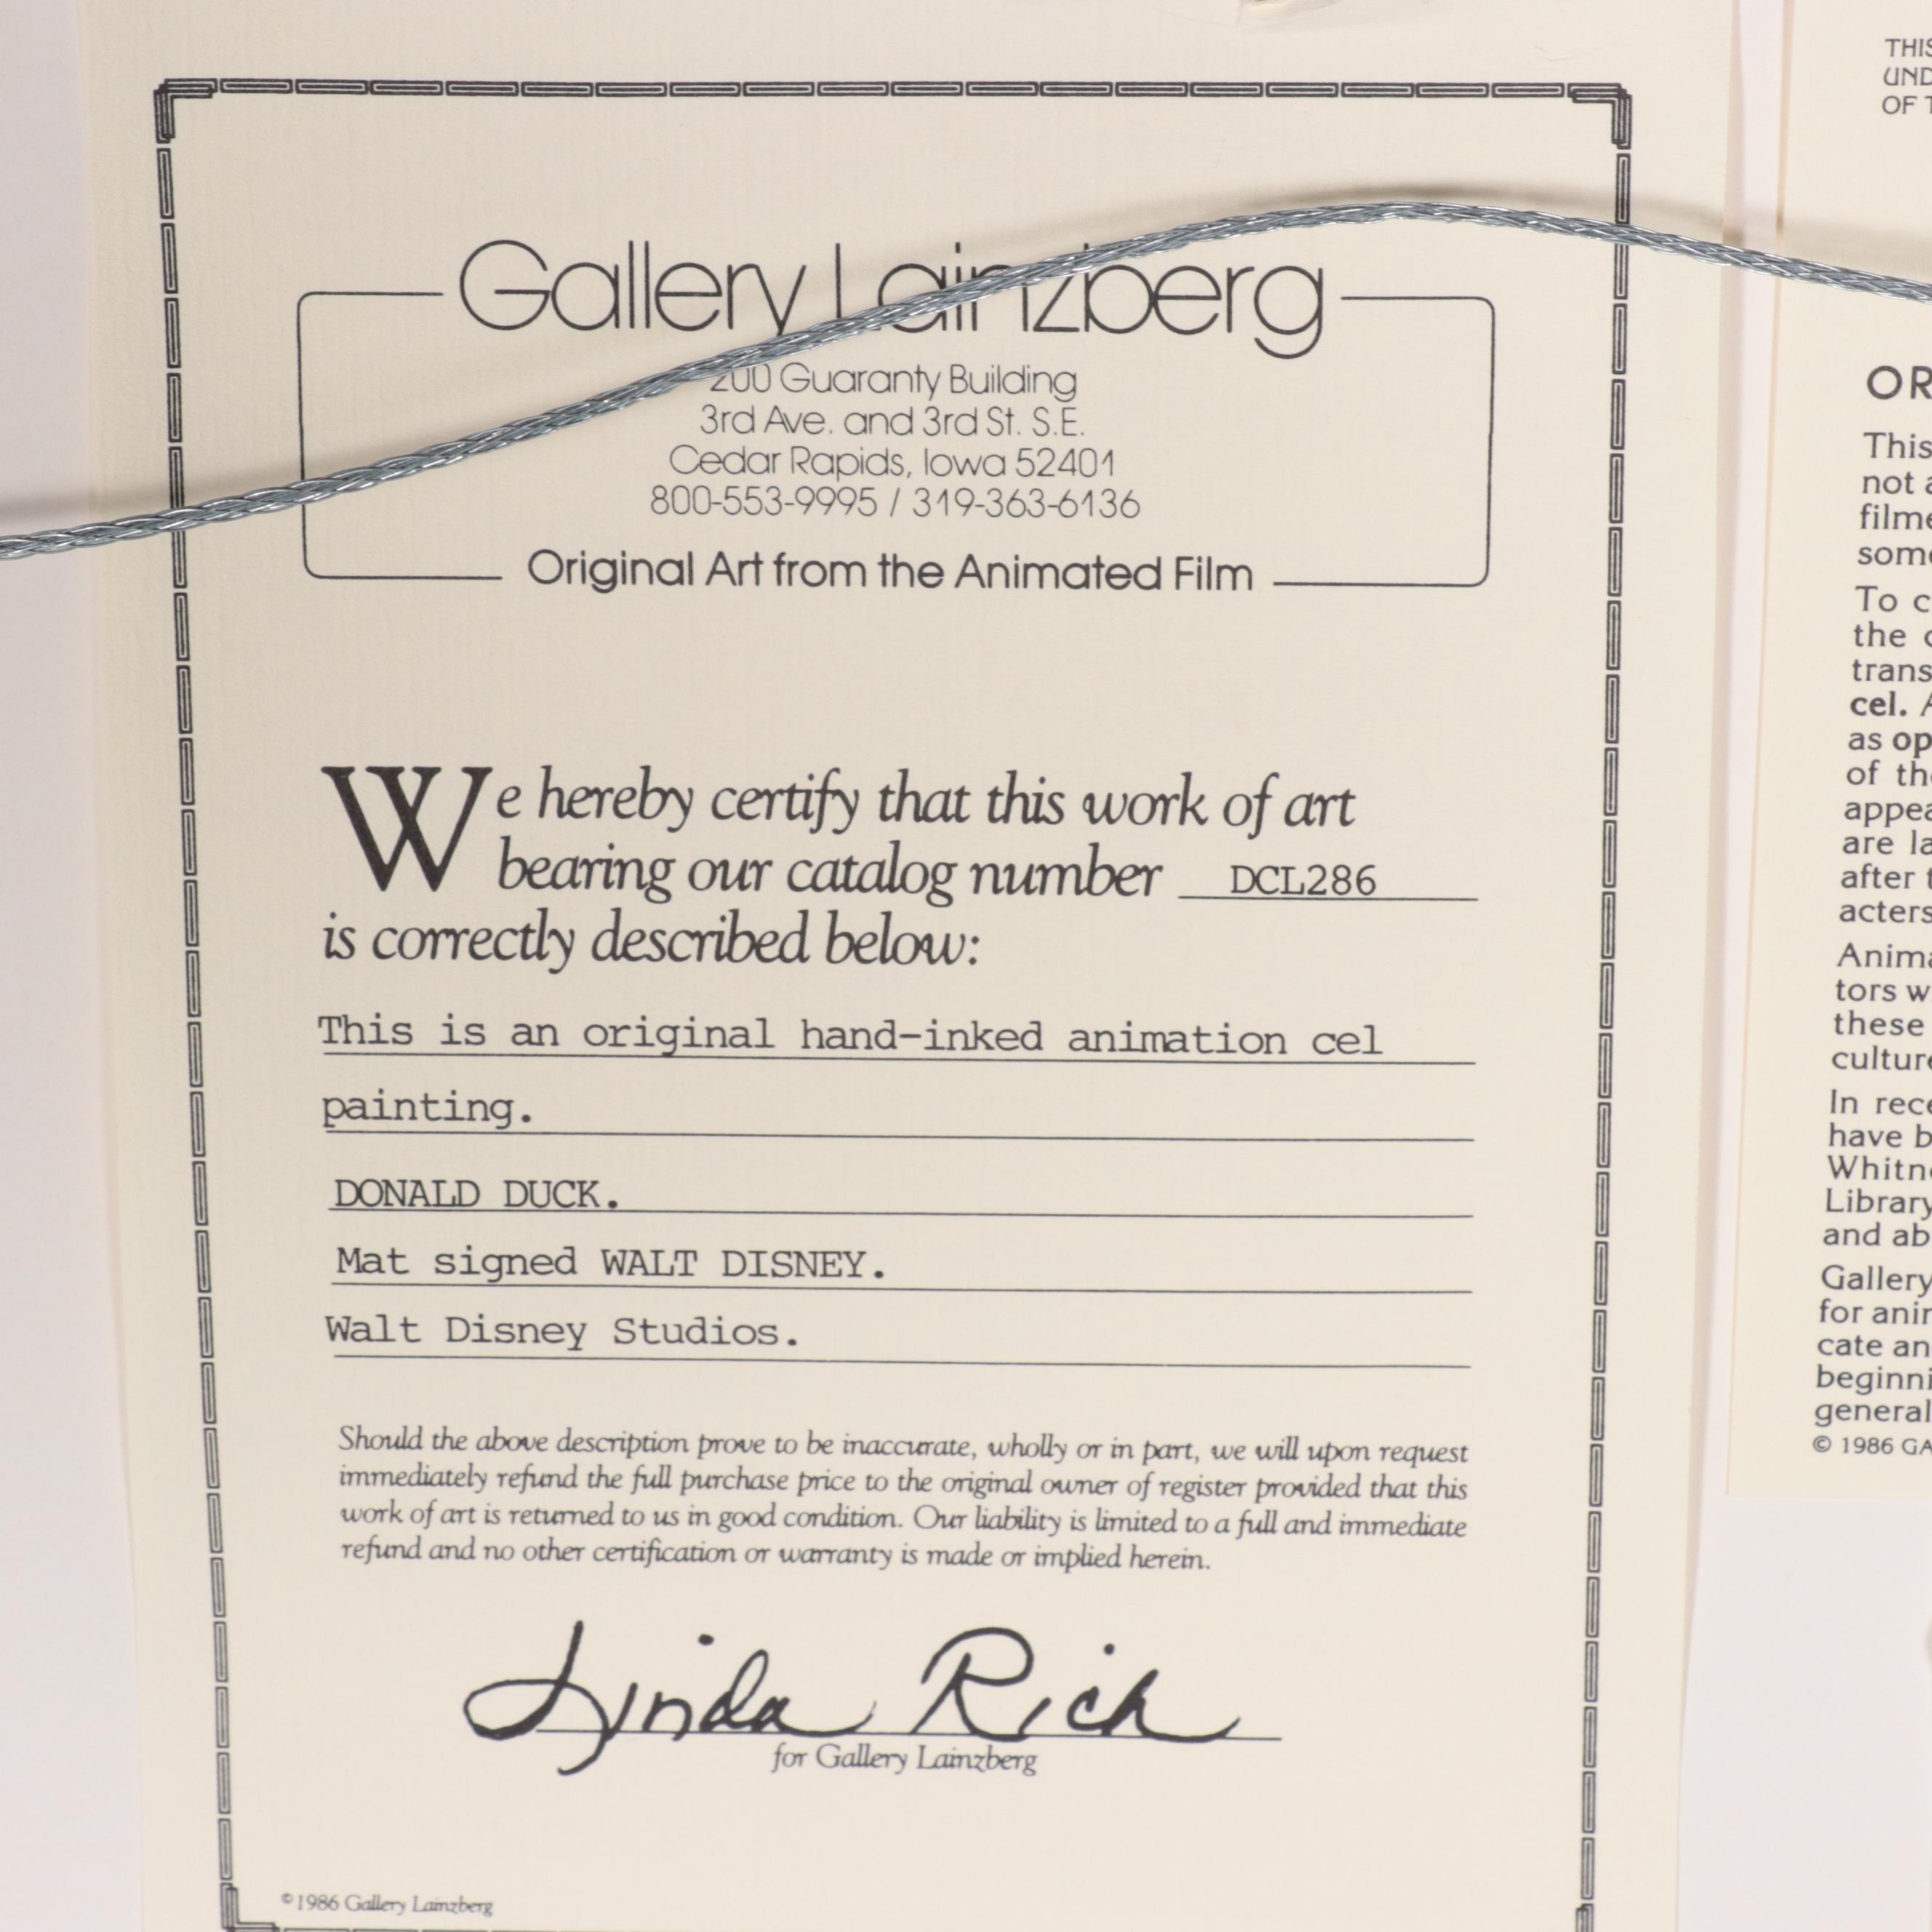 Gallery Lainzberg
200 Guaranty Building
3rd Ave. and 3rd St. S.E.
Cedar Rapids, Iowa 52401
800-553-9995 / 319-363-6136
Original Art from the Animated Film
We hereby certify that this work of art
bearing our catalog number DCL286
is correctly described below:
This is an original hand-inked animation cel
painting.
DONALD DUCK.
Mat signed WALT DISNEY.
Walt Disney Studios.
Should the above description prove to be inaccurate, wholly or in part, we will upon request
immediately refund the full purchase price to the original owner of register provided that this
work of art is returned to us in good condition. Our liability is limited to a full and immediate
refund and no other certification or warranty is made or implied herein.
Lynda Rich
for Gallery Lainzberg
©1986 Gallery Lainzberg
This
not
To
the
cel.
as
of
are
after
tors
these
In
have
and
Gallery
for
cate
© 1986